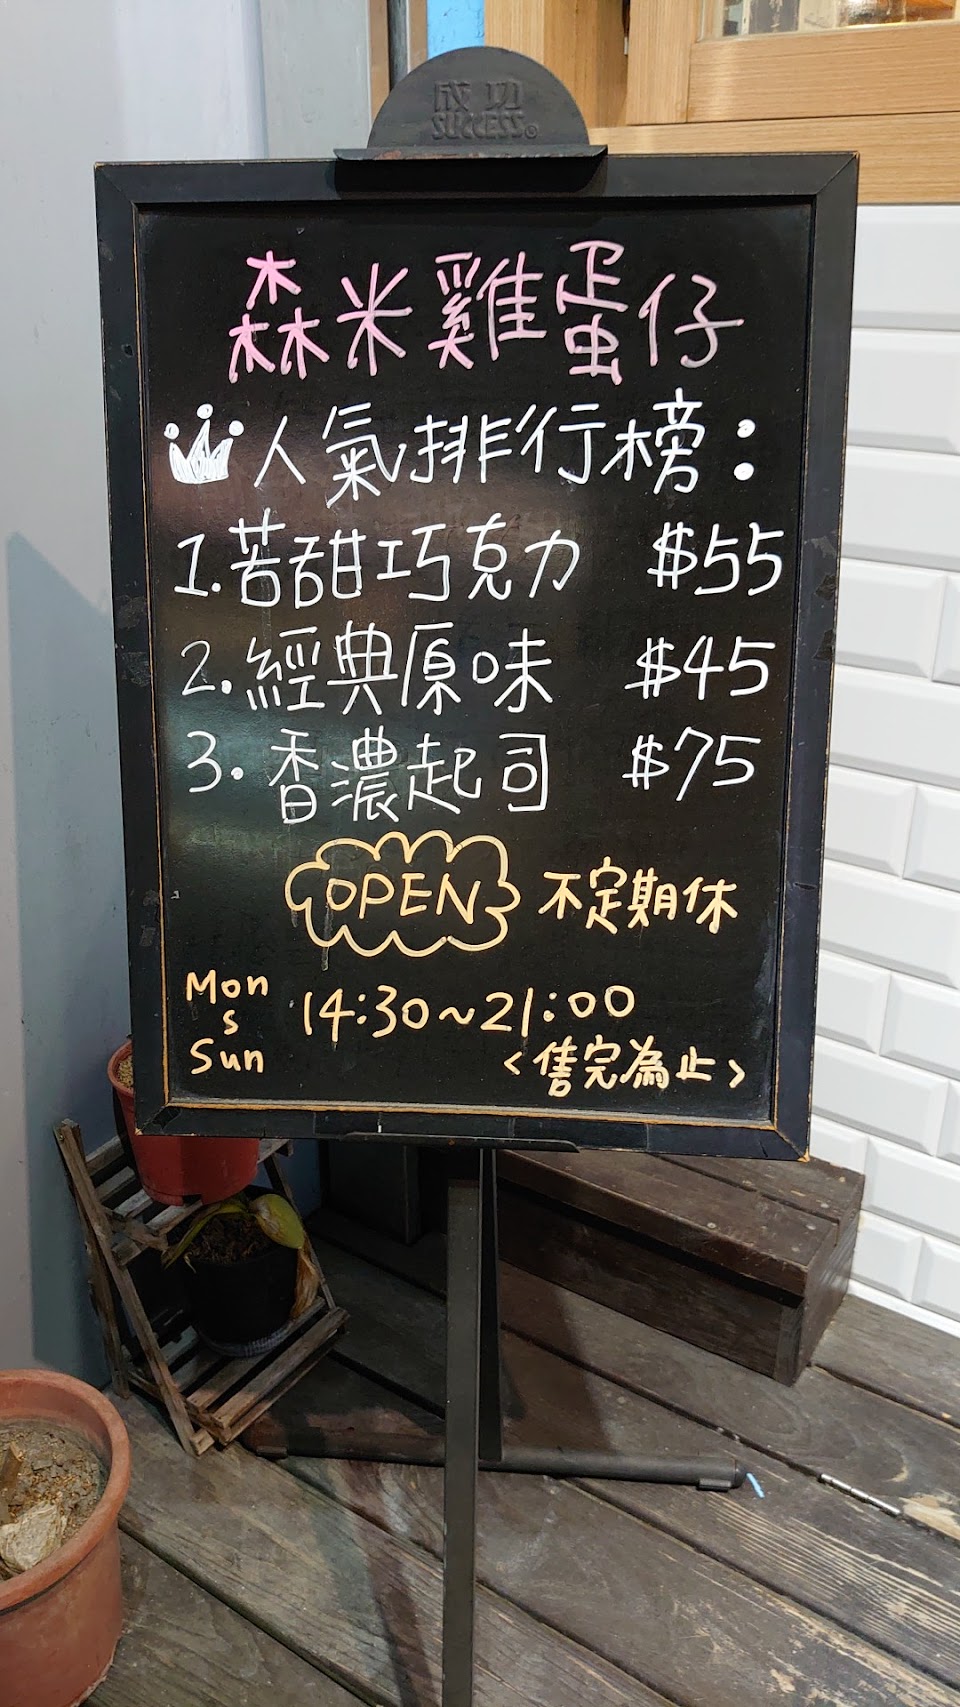 成功
SUCCESS®
森米雞蛋仔
人氣排行榜:
1.苦甜巧克力 $55
2.經典原味 $45
3.香濃起司 $75
OPEN 不定期休
Mon
s
Sun
14:30~21:00
<售完為止>